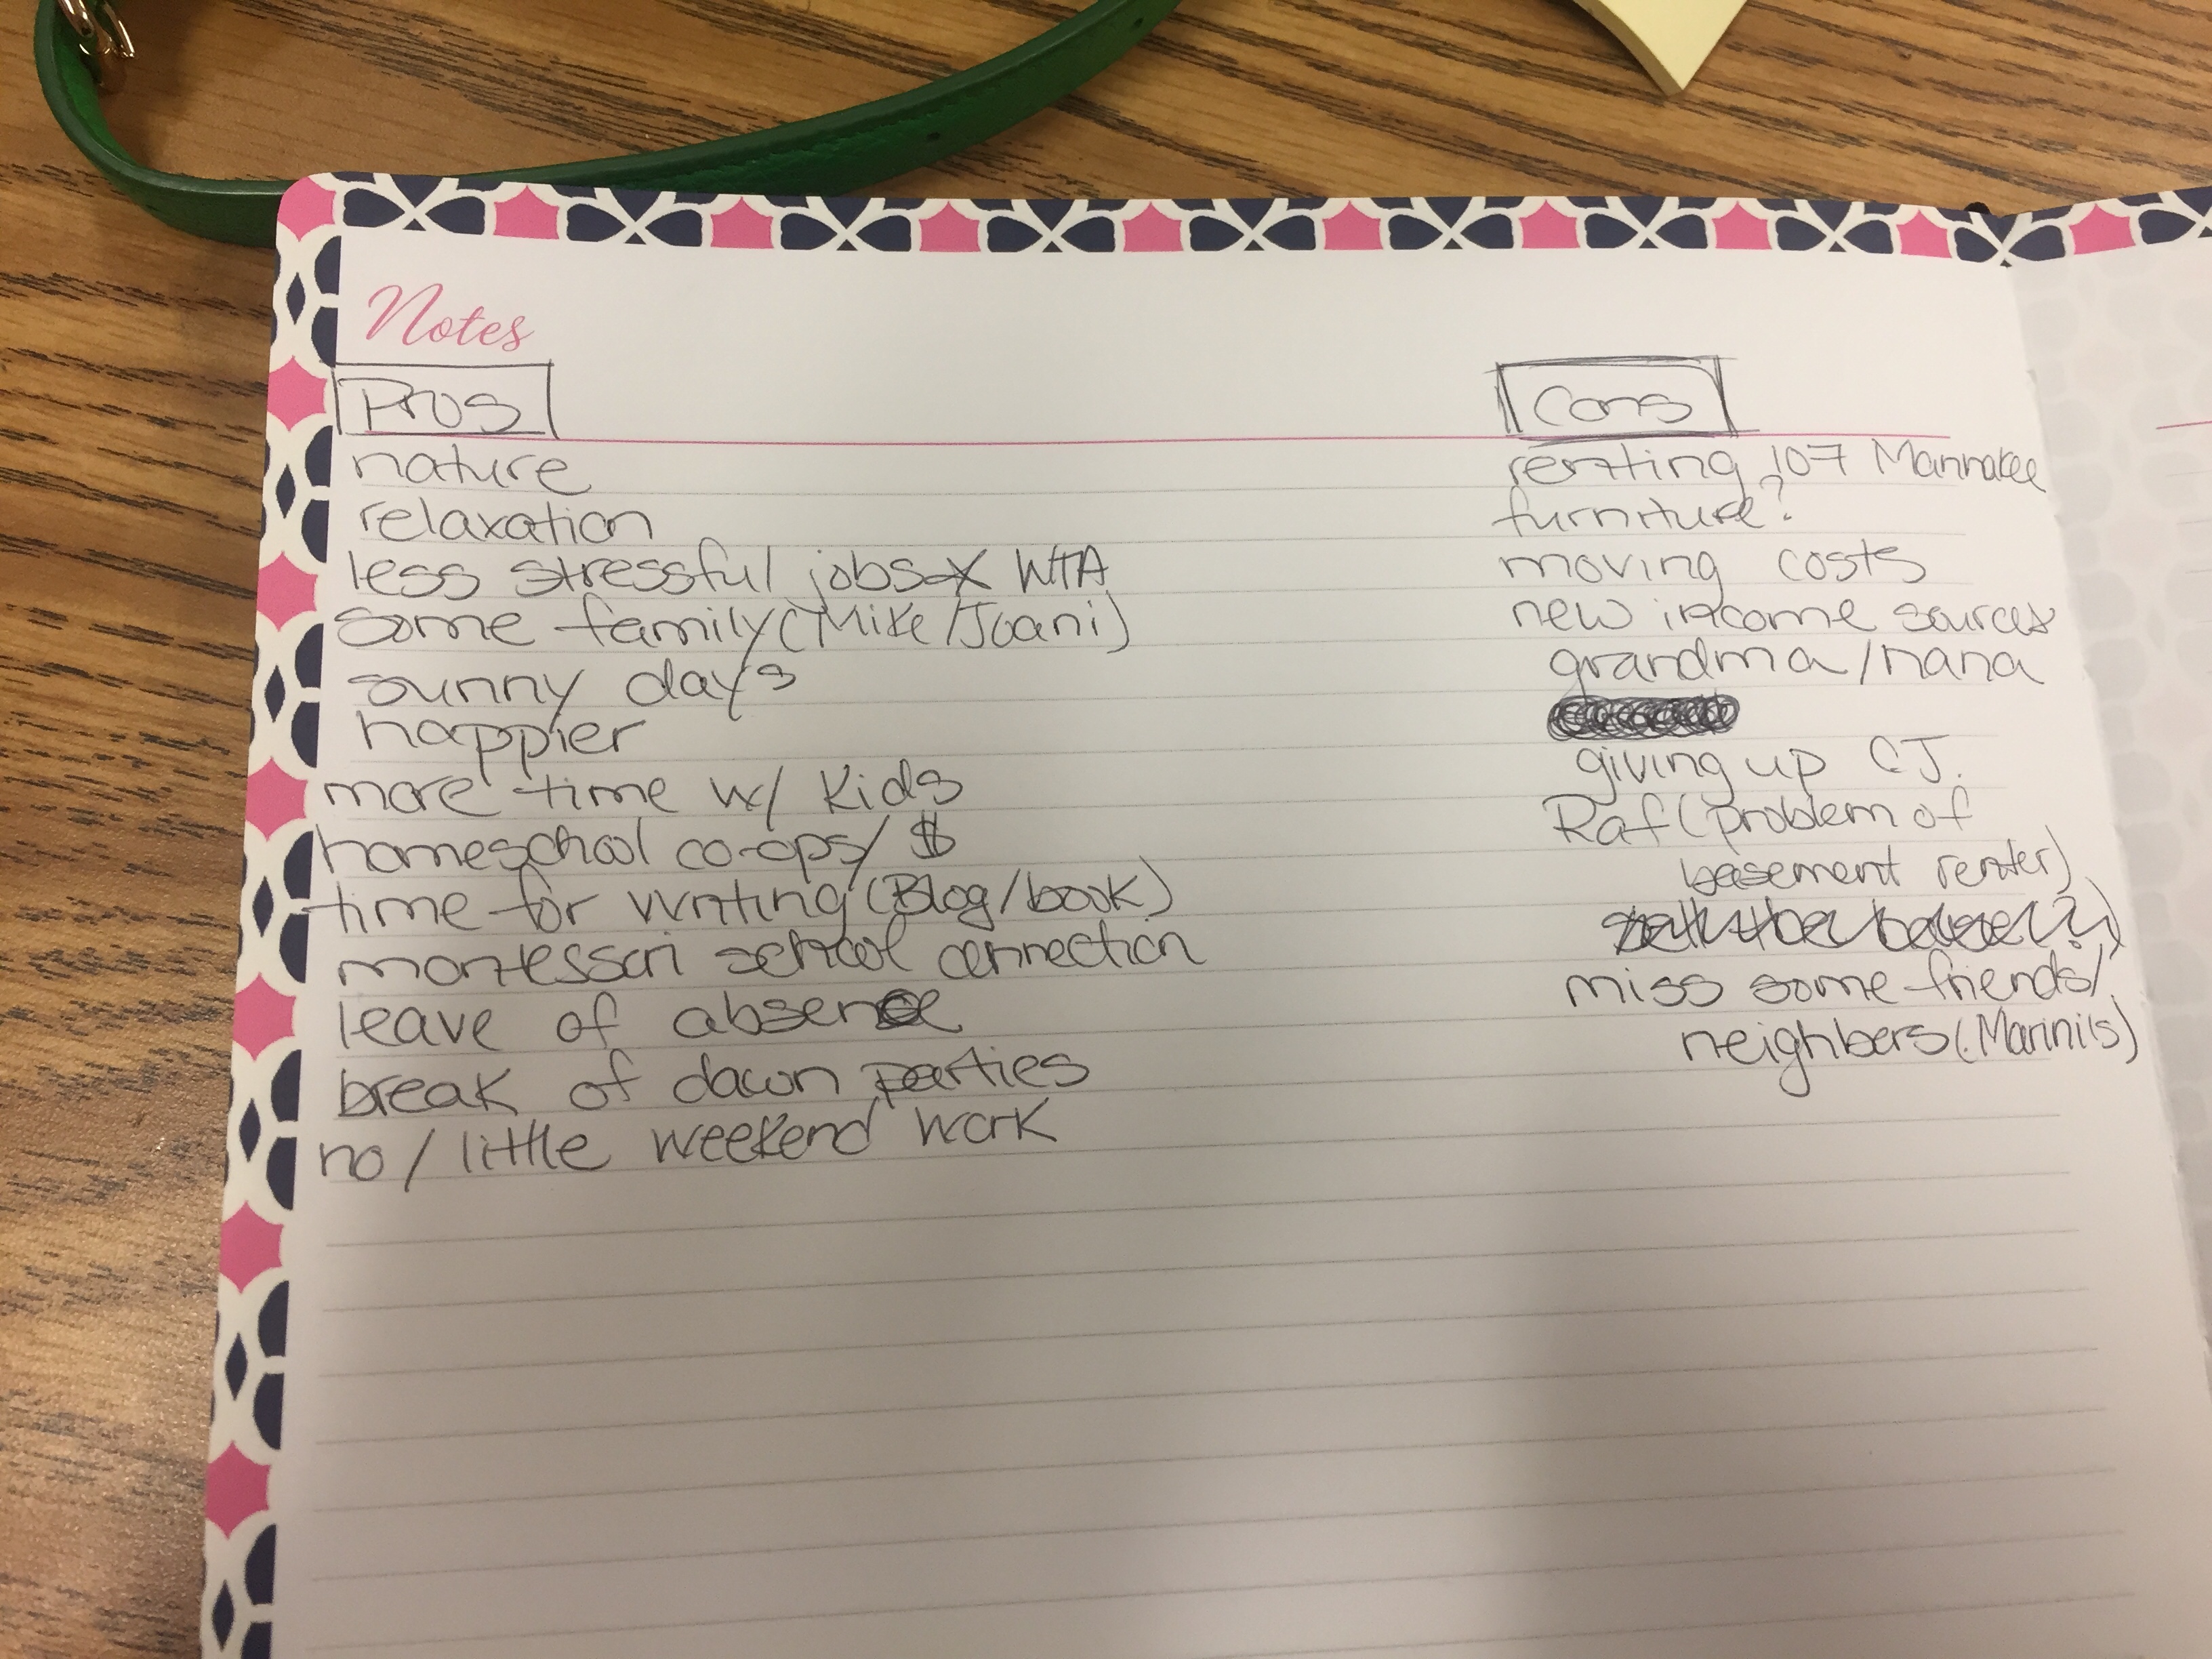 Notes
Pros
nature
relaxation
less stressful jobs WTA
some family (Mike/Joani)
sunny days
happier
more time w/ kids
homeschool co-ops/ $
time for writing (Blog/book)
montessori school connection
leave of absence
break of dawn parties
no / little weekend work
Cons
renting 107 Mannakee
furniture?
moving costs
new income sources
grandma/nana
giving up CJ.
Raf (problem of
basement renter)
miss some friends/
neighbers (Marini's)